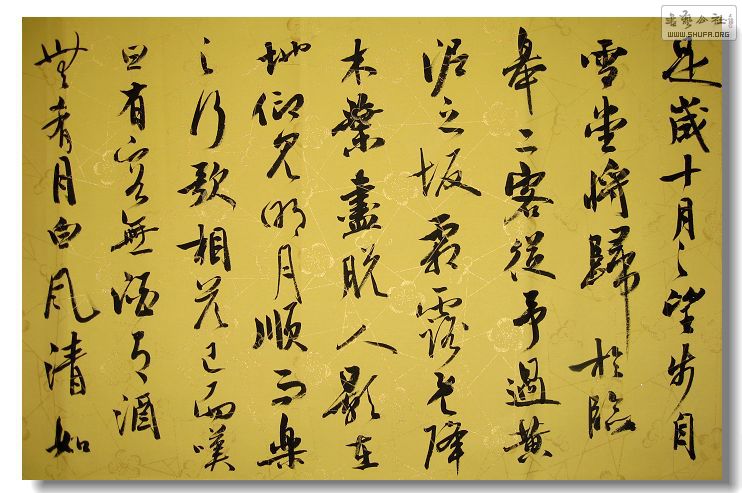 是歲十月之望步自
雪堂將歸於臨
皋二客從予過黃
泥之坂霜露既降
木葉盡脫人影在
地仰見明月顧而樂
之行歌相答已而嘆
曰有客無酒有酒
無肴月白風清如
书艺公社
WWW.SHUFA.ORG